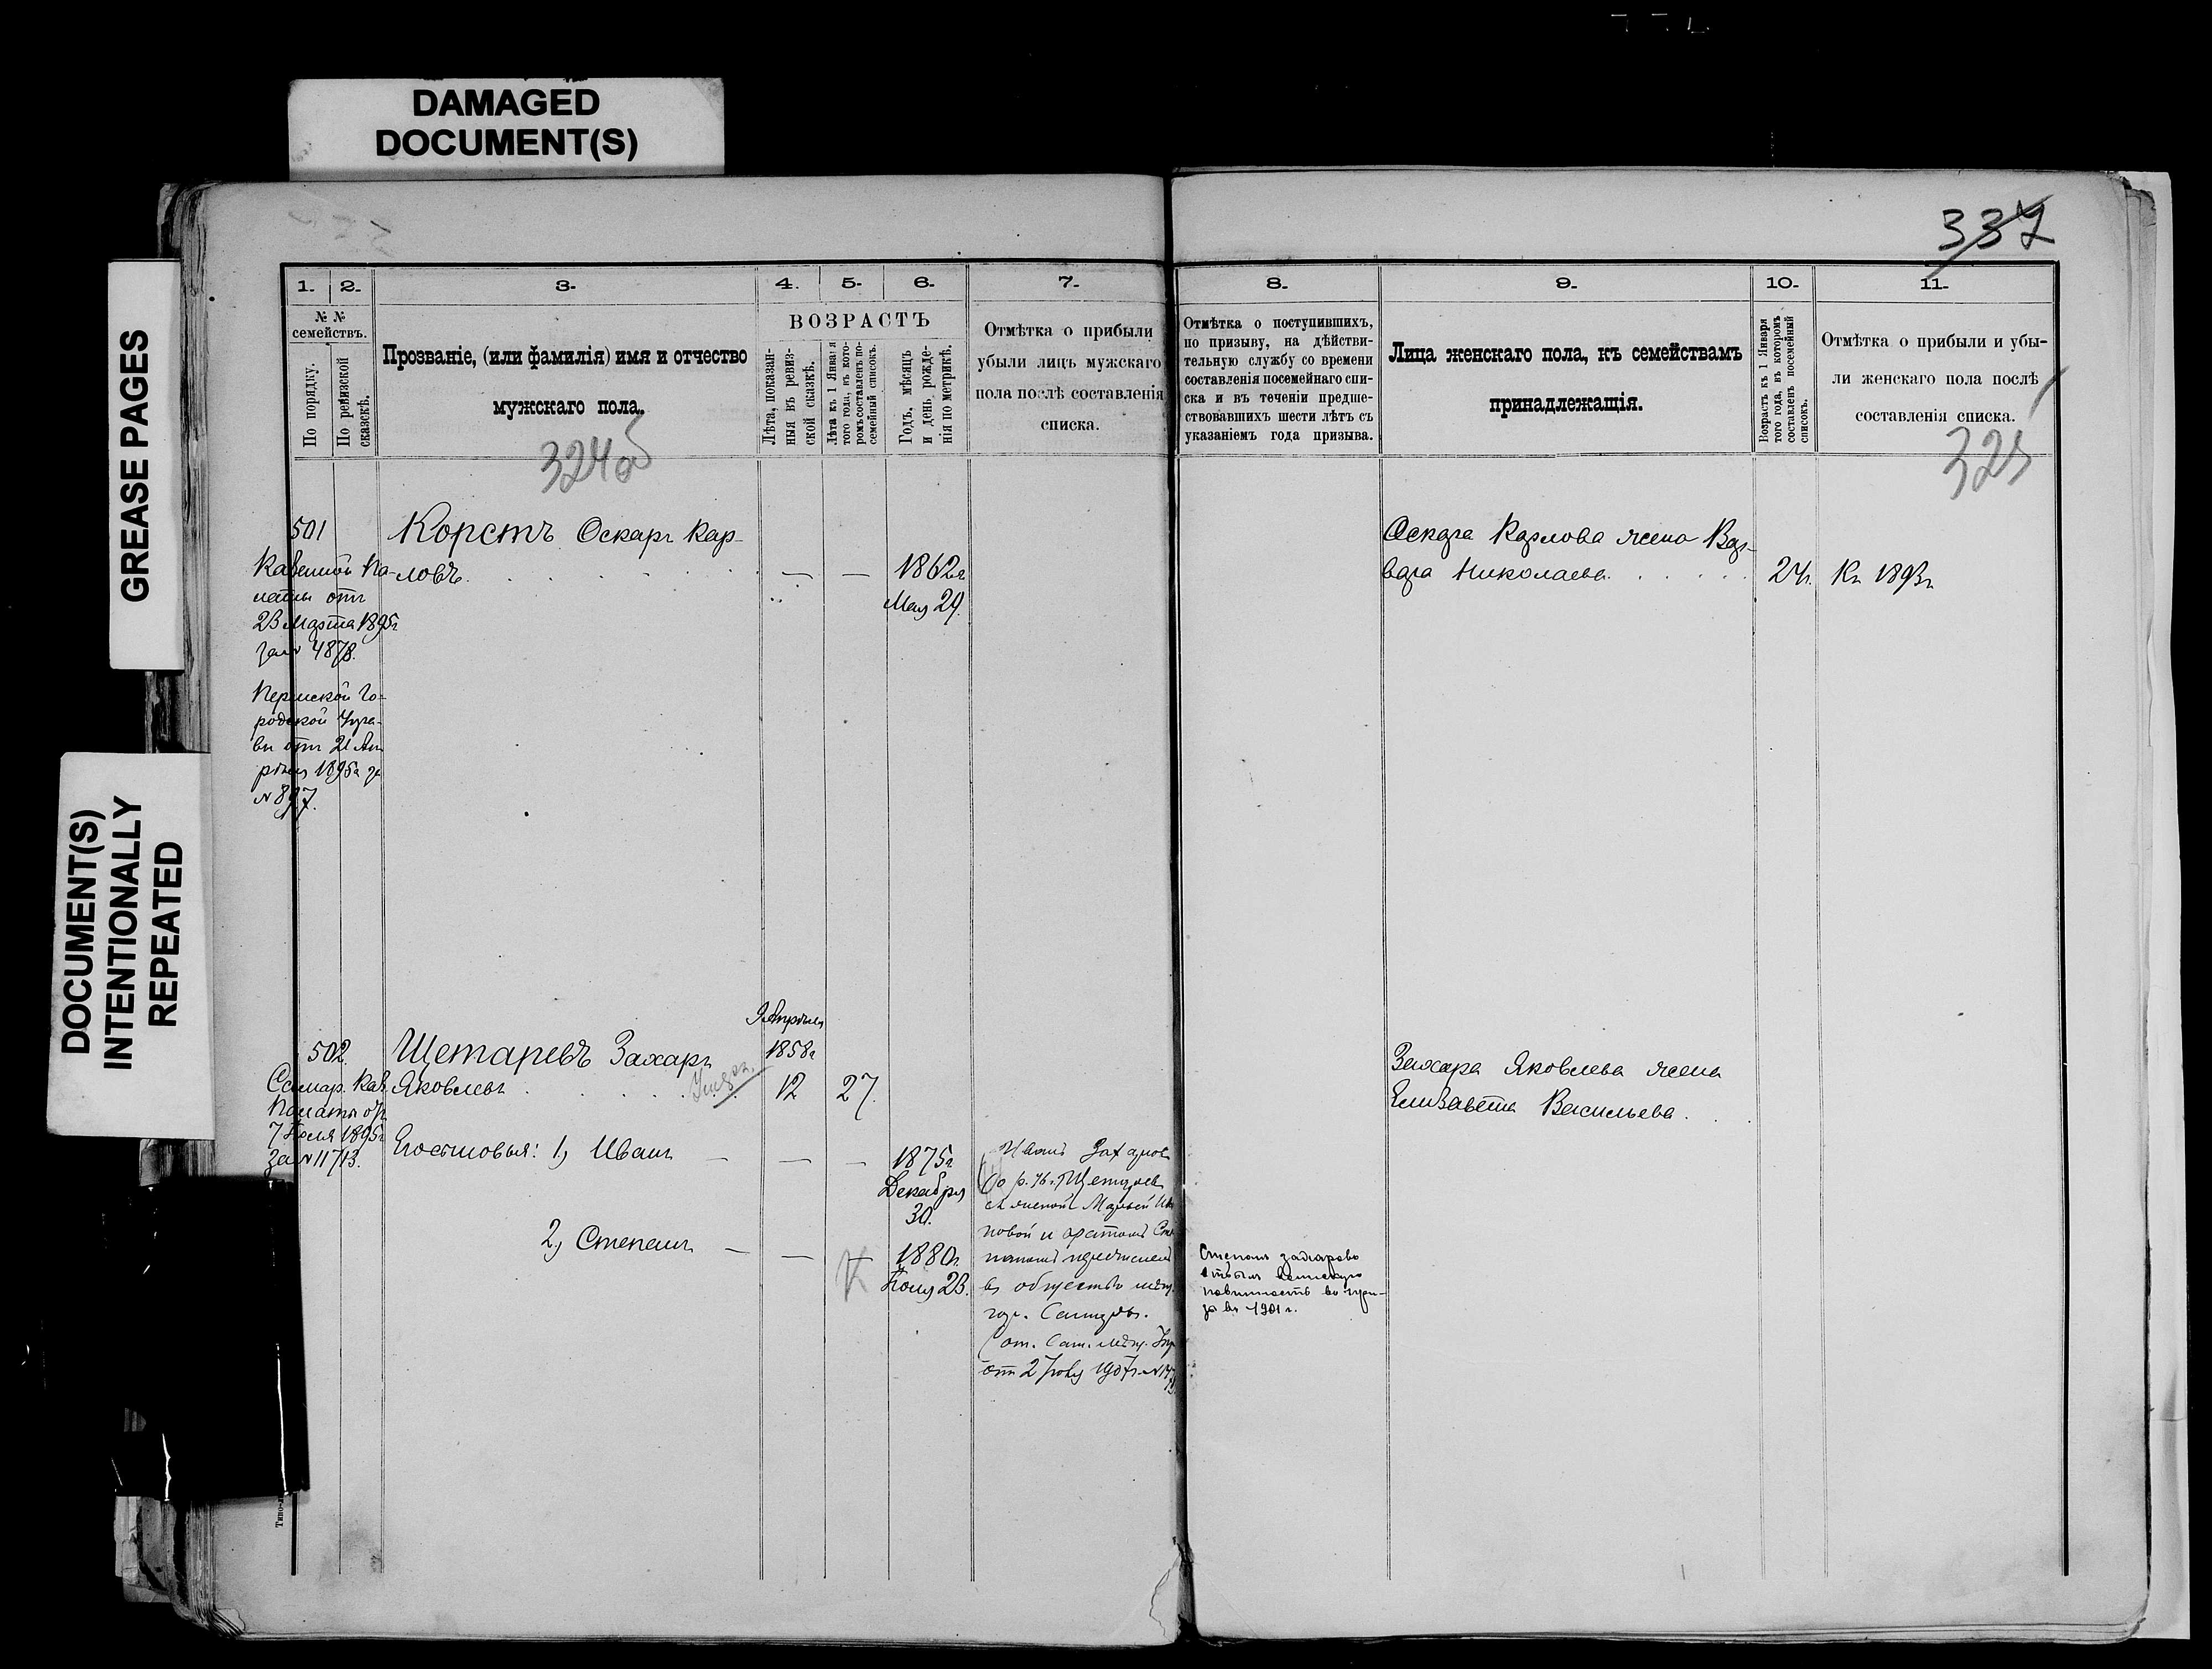 DAMAGED
DOCUMENT(S)
GREASE PAGES
DOCUMENT(S)
INTENTIONALLY
REPEATED
337
1.
2.
3.
4.
5.
6.
7.
№ №
семействъ.
По порядку.
По ревизской
сказскѣ.
Прозваніе, (или фамилія) имя и отчество
мужскаго пола.
324об
ВОЗРАСТЪ
Лѣта, показан-
ныя въ ревиз-
ской сказкѣ.
Лѣта къ 1 Января
того года, въ кото-
ромъ составленъ по-
семейный списокъ.
Годъ, мѣсяцъ
и день рожде-
нія по метрикѣ.
Отмѣтка о прибыли
убыли лицъ мужскаго
пола послѣ составленія
списка.
8.
9.
10.
11.
Отмѣтка о поступившихъ,
по призыву, на дѣйстви-
тельную службу со времени
составленія посемейнаго спи-
ска и въ теченіи предше-
ствовавшихъ шести лѣтъ съ
указаніемъ года призыва.
Лица женскаго пола, къ семействамъ
принадлежащія.
Возрастъ къ 1 Января
того года, въ которомъ
составленъ посемейный
списокъ.
Отмѣтка о прибыли и убы-
ли женскаго пола послѣ
составленія списка.
325
501
Казенной Па-
латы отъ
23 Марта 1895г
за № 4878.
Пермской Го-
родской Упра-
вы отъ 21 Ап-
рѣля 1895г за
№ 897.
Корстъ Оскаръ Кар-
ловъ.
— —
1862г
Мая 29.
Оскара Карлова жена Вар-
вара Николаева
24. Къ 1893г
502.
Самар. Каз.
Палаты отъ
7 Іюля 1895г
за № 11713.
Щетаревъ Захаръ
Яковлевъ
Апрѣля
1858г
12
27.
Захара Яковлева жена
Елизавета Васильева.
1, Иванъ — — —
1875г
Декабря
30.
2, Степанъ — — —
1880г.
Іюля 23.
Иванъ Захаровъ
съ женой Марьей
новой и братомъ
въ общество мѣщ.
гор. Самары.
отъ 2 1907г. №
Степанъ Захаровъ
отбылъ воинскую
повинность въ
въ 1901 г.
Типо-